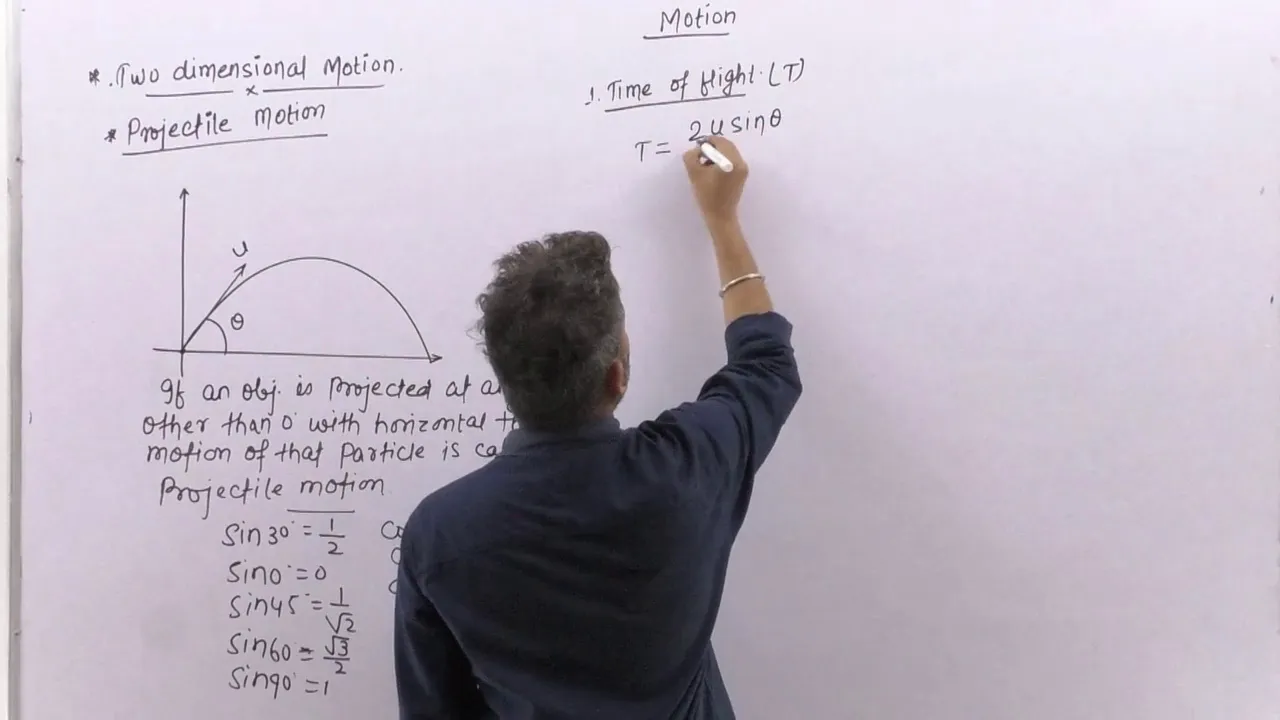 * . Two dimensional Motion.
x
* Projectile Motion
u
θ
If an obj. is Projected at
other than 0° with horizontal
motion of that Particle is
Projectile motion
Sin30° = 1/2
Sin0° = 0
Sin45° = 1/√2
Sin60° = √3/2
Sin90° = 1
Motion
1. Time of flight. (T)
T = 2usinθ